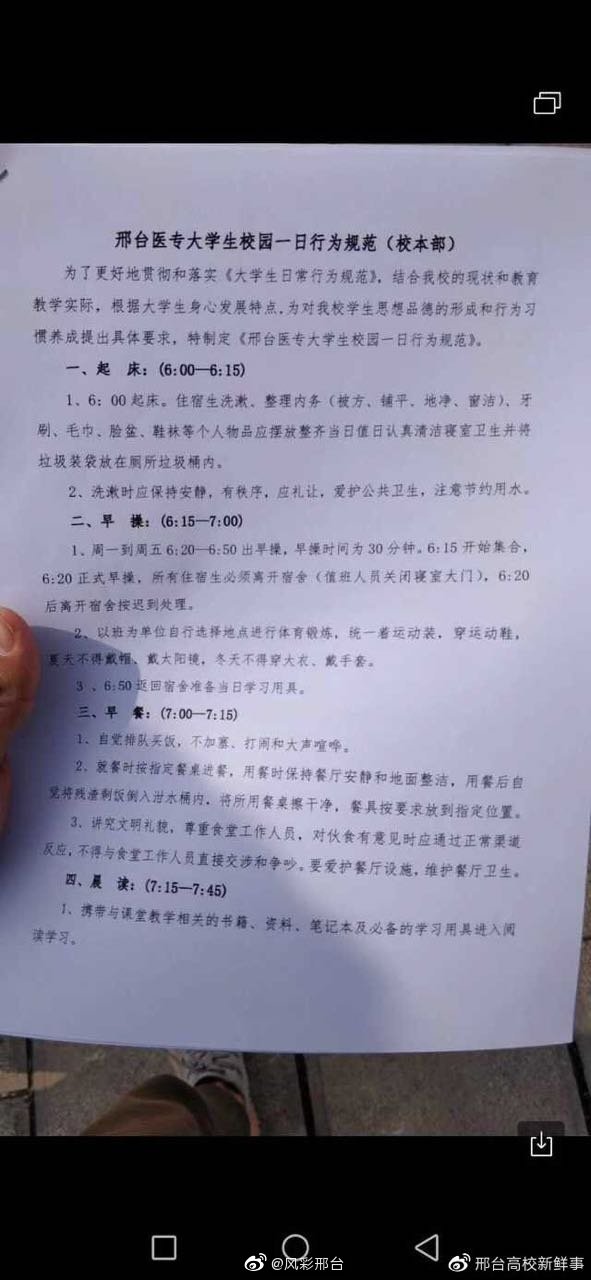 邢台医专大学生校园一日行为规范（校本部）
为了更好地贯彻和落实《大学生日常行为规范》，结合我校的现状和教育
教学实际，根据大学生身心发展特点，为对我校学生思想品德的形成和行为习
惯养成提出具体要求，特制定《邢台医专大学生校园一日行为规范》。
一、起　床：(6:00—6:15)
1、6：00起床。住宿生洗漱、整理内务（被方、铺平、地净、窗洁）、牙
刷、毛巾、脸盆、鞋袜等个人物品应摆放整齐当日值日认真清洁寝室卫生并将
垃圾装袋放在厕所垃圾桶内。
2、洗漱时应保持安静，有秩序，应礼让，爱护公共卫生，注意节约用水。
二、早　操：(6:15—7:00)
1、周一到周五6:20—6:50出早操，早操时间为30分钟。6:15开始集合，
6:20正式早操，所有住宿生必须离开宿舍（值班人员关闭寝室大门），6:20
后离开宿舍按迟到处理。
2、以班为单位自行选择地点进行体育锻炼，统一着运动装，穿运动鞋，
夏天不得戴帽、戴太阳镜，冬天不得穿大衣、戴手套。
3、6:50返回宿舍准备当日学习用具。
三、早　餐：(7:00—7:15)
1、自觉排队买饭，不加塞、打闹和大声喧哗。
2、就餐时按指定餐桌进餐，用餐时保持餐厅安静和地面整洁，用餐后自
觉将残渣剩饭倒入泔水桶内，将所用餐桌擦干净，餐具按要求放到指定位置。
3、讲究文明礼貌，尊重食堂工作人员，对伙食有意见时应通过正常渠道
反应，不得与食堂工作人员直接交涉和争吵。要爱护餐厅设施，维护餐厅卫生。
四、晨　读：(7:15—7:45)
1、携带与课堂教学相关的书籍、资料、笔记本及必备的学习用具进入阅
读学习。
@风彩邢台
邢台高校新鲜事